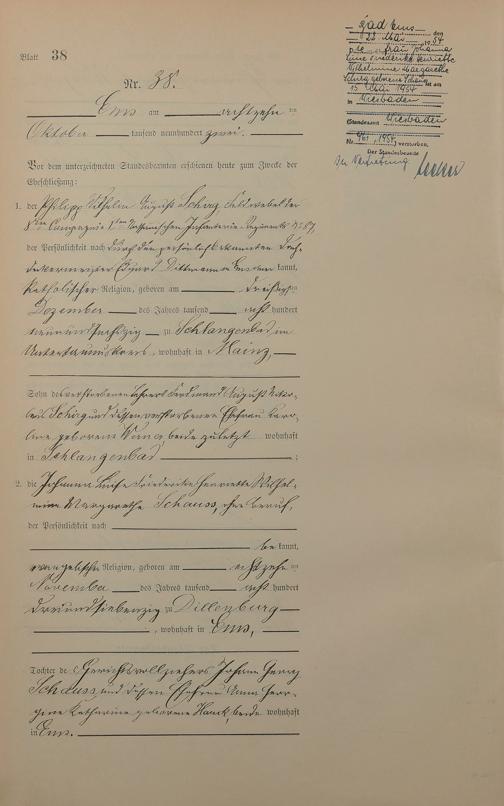 Blatt 38
Nr. 38.
Ems am achtzehnten
Oktober tausend neunhundert zwei.
Vor dem unterzeichneten Standesbeamten erschienen heute zum Zwecke der
Eheschließung:
1. der Philipp Wilhelm August Schirg, Feldwebel der
8ten Compagnie 1ten Nassauischen Infanterie Regiments No 87,
der Persönlichkeit nach durch den persönlich bekannten
Eduard Dittmann Ems kannt,
katholischer Religion, geboren am dreißigsten
Dezember des Jahres tausend acht hundert
neunundsechzig zu Schlangenbad im
Untertaunuskreis, wohnhaft in Mainz,
Sohn des verstorbenen Lehrers Ferdinand August
Schirg und dessen verstorbenen Ehefrau Karo-
line geborenen beide zuletzt wohnhaft
in Schlangenbad ;
2. die Johanna Luise Friederike Henriette Wilhel-
mine Margarethe Schauss, ohne Beruf,
der Persönlichkeit nach
be kannt,
evangelischer Religion, geboren am achtzehnten
November des Jahres tausend acht hundert
dreiundsiebenzig zu Dillenburg
, wohnhaft in Ems,
Tochter des Gerichtsvollziehers Johann Georg
Schauss, und dessen Ehefrau Anna
Katharine geborene Hauck, beide wohnhaft
in Ems.
Bad Ems, den
22. Mai 1954
Die Ehefrau Johanna
Luise Friederike Henriette
Wilhelmine Margarethe
Schirg geborene Schauss
ist am
15. Mai 1954
in Wiesbaden
Standesamt Wiesbaden
Nr. 961, 1954, verstorben.
Der Standesbeamte
In Vertretung